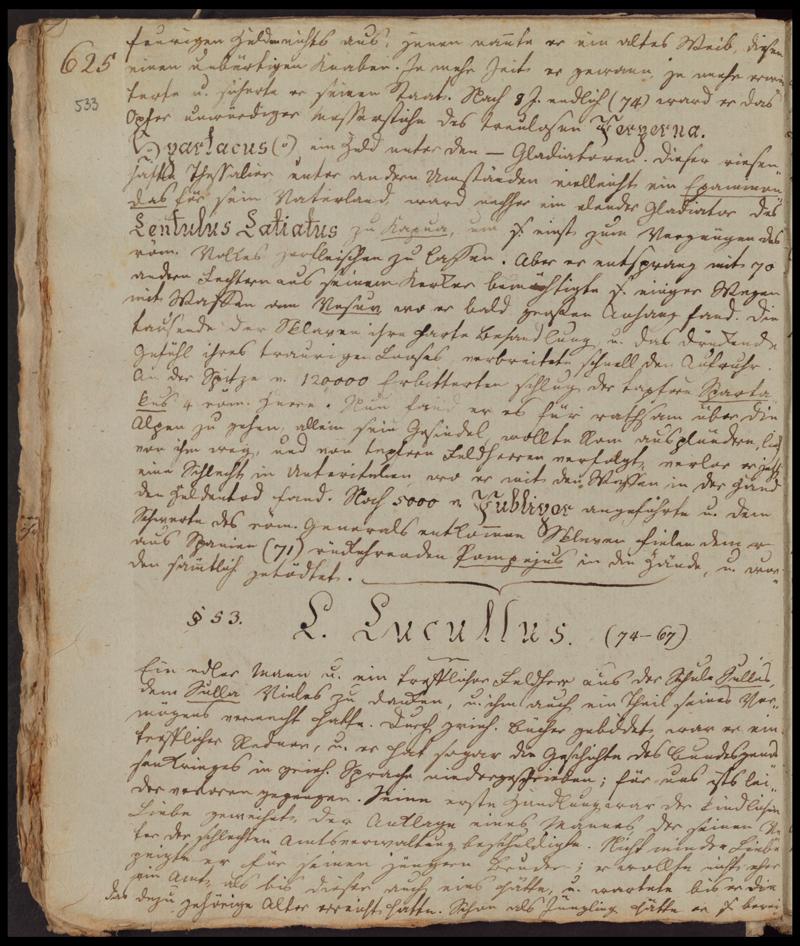 625
533
feurigen Heldenreichs aus; jenen nannte er ein altes Weib, diesen
einen unbärtigen Knaben. Je mehr Zeit er gewann, je mehr erwei
terte u. sicherte er seinen Staat. Nach 8 J. endlich (74) ward er das
Opfer unwürdiger Messerstiche des treulosen Perperna.
Spartacus (°) ein Held unter den – Gladiatoren. Dieser riesen-
hafte Thessalier unter andern Umständen vielleicht ein Epaminon
das für sein Vaterland, ward nachher ein elender Gladiator des
Lentulus Batiatus zu Kapua, um s. einst zum Vergnügen des
röm. Volkes zerfleischen zu lassen. Aber er entsprang mit 70
andern Fechtern aus seinem Kerker bemächtigte s. einiger Wegen
mit Waffen am Vesuv wo er bald großen Anhang fand. Die
tausende der Sklaven ihre harte Behandlung u. das drückende
Gefühl ihres traurigen Looses verbreitete schnell den Aufruhr.
An der Spitze v. 120000 Erbitterten schlug der tapfere Sparta
kus 4 röm. Heere. Nun fand er es für rathsam über die
Alpen zu gehen, allein sein Gesindel wollte Rom ausplündern, lief
vor ihm weg, und von tapfern Feldherren verfolgt, verlor er zuletzt
eine Schlacht in Unteritalien, wo er mit den Waffen in der Hand
den Heldentod fand. Noch 5000 v. Publipor angeführte u. dem
Schwerte des röm. Generals entkommene Sklaven fielen dem
aus Spanien (71) rückkehrenden Pompejus in die Hände, u. wur-
den sämtlich getödtet.
§ 53. L. Lucullus. (74–67)
Ein edler Mann u. ein trefflicher Feldherr aus der Schule Sullas,
dem Sulla Vieles zu danken, u. ihm auch ein Theil seines Ver-
mögens vermacht hatte. Durch griech. Bücher gebildet, war er ein
trefflicher Redner, u. er hat sogar die Geschichte des Bundesgenos
senkrieges in griech. Sprache niedergeschrieben; für uns ists lei-
der verloren gegangen. Seine erste Handlung war der kindlichen
Liebe geweihet, der Anklage eines Mannes der seinen Va
ter der schlechten Amtsverwaltung beschuldigte. Nicht minder Liebe
zeigte er für seinen jüngern Bruder; er wollte nicht eher
ein Amt, als bis dieser auch eins hätte, u. wartete bis er die
das dazu gehörige Alter erreicht hatte. Schon als Jüngling hatte er s. berei